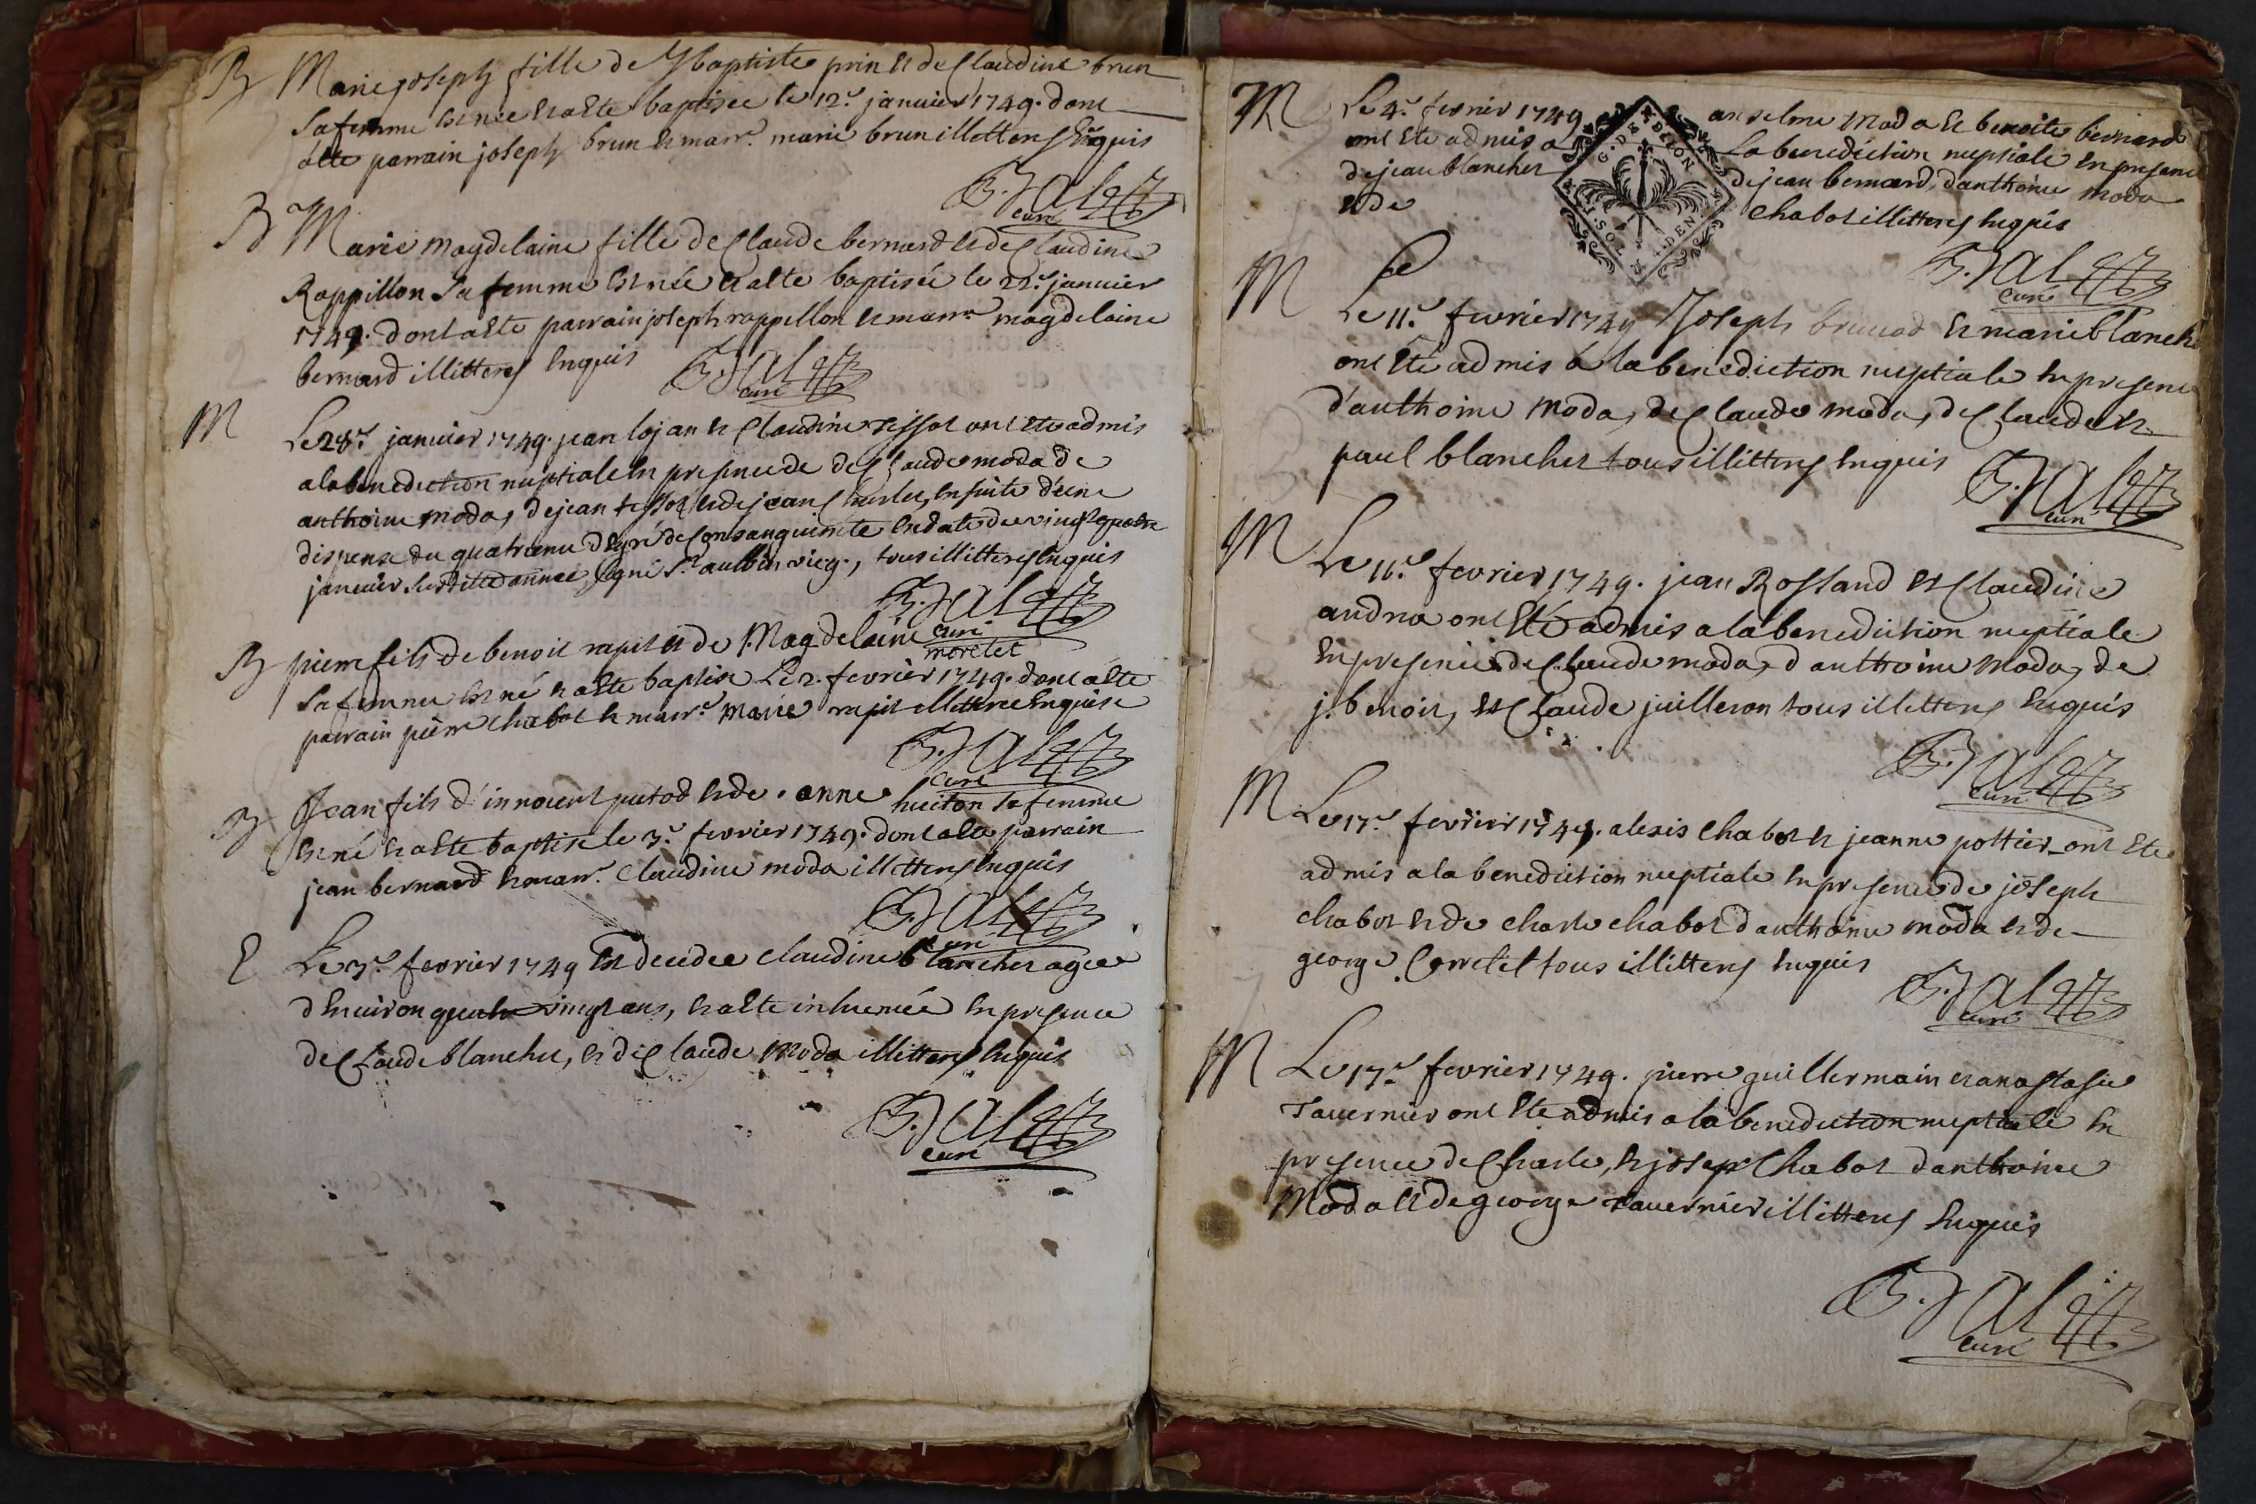 B Marie joseph fille de J baptiste prin et de Claudine brun
Sa femme est née et a ete baptisee le 12.e janvier 1749. dont
a ete parrain joseph brun et marr.e marie brun illitteres Enquis
curé
B Marie magdelaine fille de Claude bernard et de Claudine
Rappillon Sa femme est née et a ete baptisée le 22.e janvier
1749. dont a ete parrain joseph rappillon et marr.e magdelaine
bernard illitteres Enquis
curé
M Le 28.e janvier 1749. jean lojan et Claudine tissot ont ete admis
a la benediction nuptiale En presence de Claude moda de
anthoine moda, de jean tissot et de jean Charles, En suite d'une
dispense du quatrieme degré de Consanguinite En date du vingt quatre
janvier Susditte année, Signé S.t aulbin vicg., tous illitteres Enquis
curé
B pierre fils de benoit rapit et de Magdelaine morelet
Sa femme est né et a ete baptise Le 2. fevrier 1749. dont a ete
parrain pierre chabot et marr.e Marie rapit illitteree Enquise
curé
B Jean fils d'innocent putod et de anne huiton Sa femme
Est né et a ete baptise le 3.e fevrier 1749. dont a ete parrain
jean bernard et marr.e Claudine moda illitteres Enquis
curé
E Le 3.e fevrier 1749 Est decedee claudine blanchet agee
d'Environ quatre vingt ans, et a ete inhumée En presence
de Claude blanchet, et de Claude Moda illitteres Enquis
curé
M Le 4.e fevrier 1749 anselme Moda et benoite bernard
ont Ete admis a La benediction nuptiale En presence
de jean blanchet de jean bernard, d'anthoine Moda
et de Chabot illitteres Enquis
G. DE DIJON
curé
M Le 11.e fevrier 1749 Joseph brunod et marie blanchet
ont Ete admis a la benediction nuptiale En presence
d'anthoine Moda, de Claude moda, de Claude et
paul blanchet tous illitteres Enquis
curé
M Le 11.e fevrier 1749. jean Rossand et Claudine
andrea ont Eté admis a la benediction nuptiale
En presence de Claude moda, d'anthoine Moda, de
j. benoit, et Claude juilleron tous illitteres Enquis
curé
M Le 17.e fevrier 1749. alexis Chabot et jeanne pottier ont Ete
admis a la benediction nuptiale En presence de joseph
chabot et de charle chabot d'anthoine moda et de
george tous illitteres Enquis
curé
M Le 17.e fevrier 1749. pierre guillermain et anastasie
Tavernier ont Ete admis a la benediction nuptiale En
presence de Charle, et joseph Chabot d'anthoine
Moda et de george Tavernier illitteres Enquis
curé